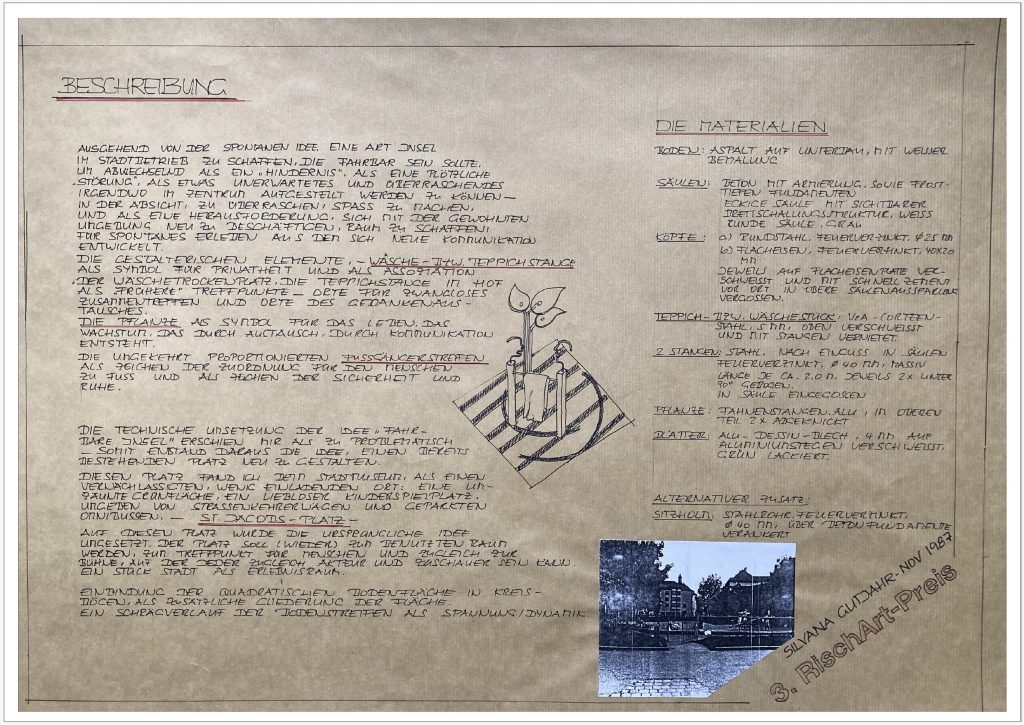 BESCHREIBUNG
AUSGEHEND VON DER SPONTANEN IDEE, EINE ART INSEL
IM STADTBETRIEB ZU SCHAFFEN, DIE FAHRBAR SEIN SOLLTE,
UM ABWECHSELND ALS EIN „HINDERNIS", ALS EINE PLÖTZLICHE
„STÖRUNG", ALS ETWAS UNERWARTETES UND ÜBERRASCHENDES
IRGENDWO IM ZENTRUM AUFGESTELLT WERDEN ZU KÖNNEN –
IN DER ABSICHT, ZU ÜBERRASCHEN, SPASS ZU MACHEN,
UND ALS EINE HERAUSFORDERUNG, SICH MIT DER GEWOHNTEN
UMGEBUNG NEU ZU BESCHÄFTIGEN, RAUM ZU SCHAFFEN
FÜR SPONTANES ERLEBEN AUS DEM SICH NEUE KOMMUNIKATION
ENTWICKELT.
DIE GESTALTERISCHEN ELEMENTE, – WÄSCHE- BZW. TEPPICHSTANGE
ALS SYMBOL FÜR PRIVATHEIT UND ALS ASSOZIATION
„DER WÄSCHETROCKENPLATZ, DIE TEPPICHSTANGE IM HOF
ALS FRÜHERE" TREFFPUNKTE – ORTE FÜR ZWANGLOSES
ZUSAMMENTREFFEN UND ORTE DES GEDANKENAUS-
TAUSCHES.
DIE PFLANZE ALS SYMBOL FÜR DAS LEBEN, DAS
WACHSTUM, DAS DURCH AUSTAUSCH, DURCH KOMMUNIKATION
ENTSTEHT.
DIE UMGEKEHRT PROPORTIONIERTEN FUSSGÄNGERSTREIFEN
ALS ZEICHEN DER ZUORDNUNG FÜR DEN MENSCHEN
ZU FUSS UND ALS ZEICHEN DER SICHERHEIT UND
RUHE.
DIE TECHNISCHE UMSETZUNG DER IDEE „FAHR-
BARE INSEL" ERSCHIEN MIR ALS ZU PROBLEMATISCH
– SOMIT ENTSTAND DARAUS DIE IDEE, EINEN BEREITS
BESTEHENDEN PLATZ NEU ZU GESTALTEN.
DIESEN PLATZ FAND ICH BEIM STADTMUSEUM: ALS EINEN
VERNACHLÄSSIGTEN, WENIG EINLADENDEN ORT: EINE UM-
ZÄUNTE GRÜNFLÄCHE, EIN LIEBLOSER KINDERSPIELPLATZ,
UMGEBEN VON STRASSENKEHRERWAGEN UND GEPARKTEN
OMNIBUSSEN. – ST. JACOBS-PLATZ –
AUF DIESEN PLATZ WURDE DIE URSPRÜNGLICHE IDEE
UMGESETZT. DER PLATZ SOLL (WIEDER) ZUM BENUTZTEN RAUM
WERDEN, ZUM TREFFPUNKT FÜR MENSCHEN UND ZUGLEICH ZUR
BÜHNE, AUF DER JEDER ZUGLEICH AKTEUR UND ZUSCHAUER SEIN KANN.
EIN STÜCK STADT ALS ERLEBNISRAUM.
EINBINDUNG DER QUADRATISCHEN BODENFLÄCHE IN KREIS-
BÖGEN, ALS ZUSÄTZLICHE GLIEDERUNG DER FLÄCHE.
EIN SCHRÄGVERLAUF DER BODENSTREIFEN ALS SPANNUNG/DYNAMIK
DIE MATERIALIEN
BODEN: ASPALT AUF UNTERBAU, MIT WEISSER
BEMALUNG
SÄULEN: BETON MIT ARMIERUNG, SOWIE FROST-
TIEFEN FUNDAMENTEN
ECKIGE SÄULE MIT SICHTBARER
BRETTSCHALUNGSSTRUKTUR, WEISS
RUNDE SÄULE, GRAU
KÖPFE: a) RUNDSTAHL, FEUERVERZINKT, Ø 25 MM
b) FLACHEISEN, FEUERVERZINKT, 40X20
MM
JEWEILS AUF FLACHEISENPLATTE VER-
SCHWEISST UND MIT SCHNELLZEMENT
VOR ORT IN OBERE SÄULENAUSSPARUNG
VERGOSSEN.
TEPPICH- BZW. WÄSCHESTÜCK: V2A-CORTZEN-
STAHL, 5 MM, OBEN VERSCHWEISST
UND MIT STANGEN VERNIETET.
2 STANGEN: STAHL, NACH EINGUSS IN SÄULEN
FEUERVERZINKT, Ø 40 MM, MASSIV
LÄNGE JE CA. 2.0 M, JEWEILS 2X UNTER
90° GEBOGEN.
IN SÄULE EINGEGOSSEN
PFLANZE: FAHNENSTANGEN, ALU, IM OBEREN
TEIL 2X ABGEKNICKT
BLÄTTER: ALU-DESSIN-BLECH, 4 MM, AUF
ALUMINIUMSTEGEN VERSCHWEISST,
GRÜN LACKIERT.
ALTERNATIVER ZUSATZ:
SITZHOLM: STAHLROHR, FEUERVERZINKT,
Ø 40 MM, ÜBER BETONFUNDAMENTE
VERANKERT
SILVANA GUTJAHR - NOV 1987
3. RischArt-Preis